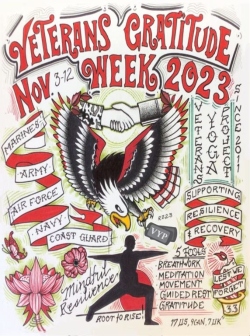 VETERANS GRATITUDE
WEEK 2023
NOV. 3-12
VETERANS
YOGA
PROJECT
SINCE 2011
MARINES
ARMY
AIR FORCE
NAVY
COAST GUARD
SUPPORTING
RESILIENCE
& RECOVERY
2023
VYP
Mindful
Resilience
ROOT TO RISE!
5 TOOLS
BREATHWORK
MEDITATION
MOVEMENT
GUIDED REST
GRATITUDE
LEST WE
FORGET